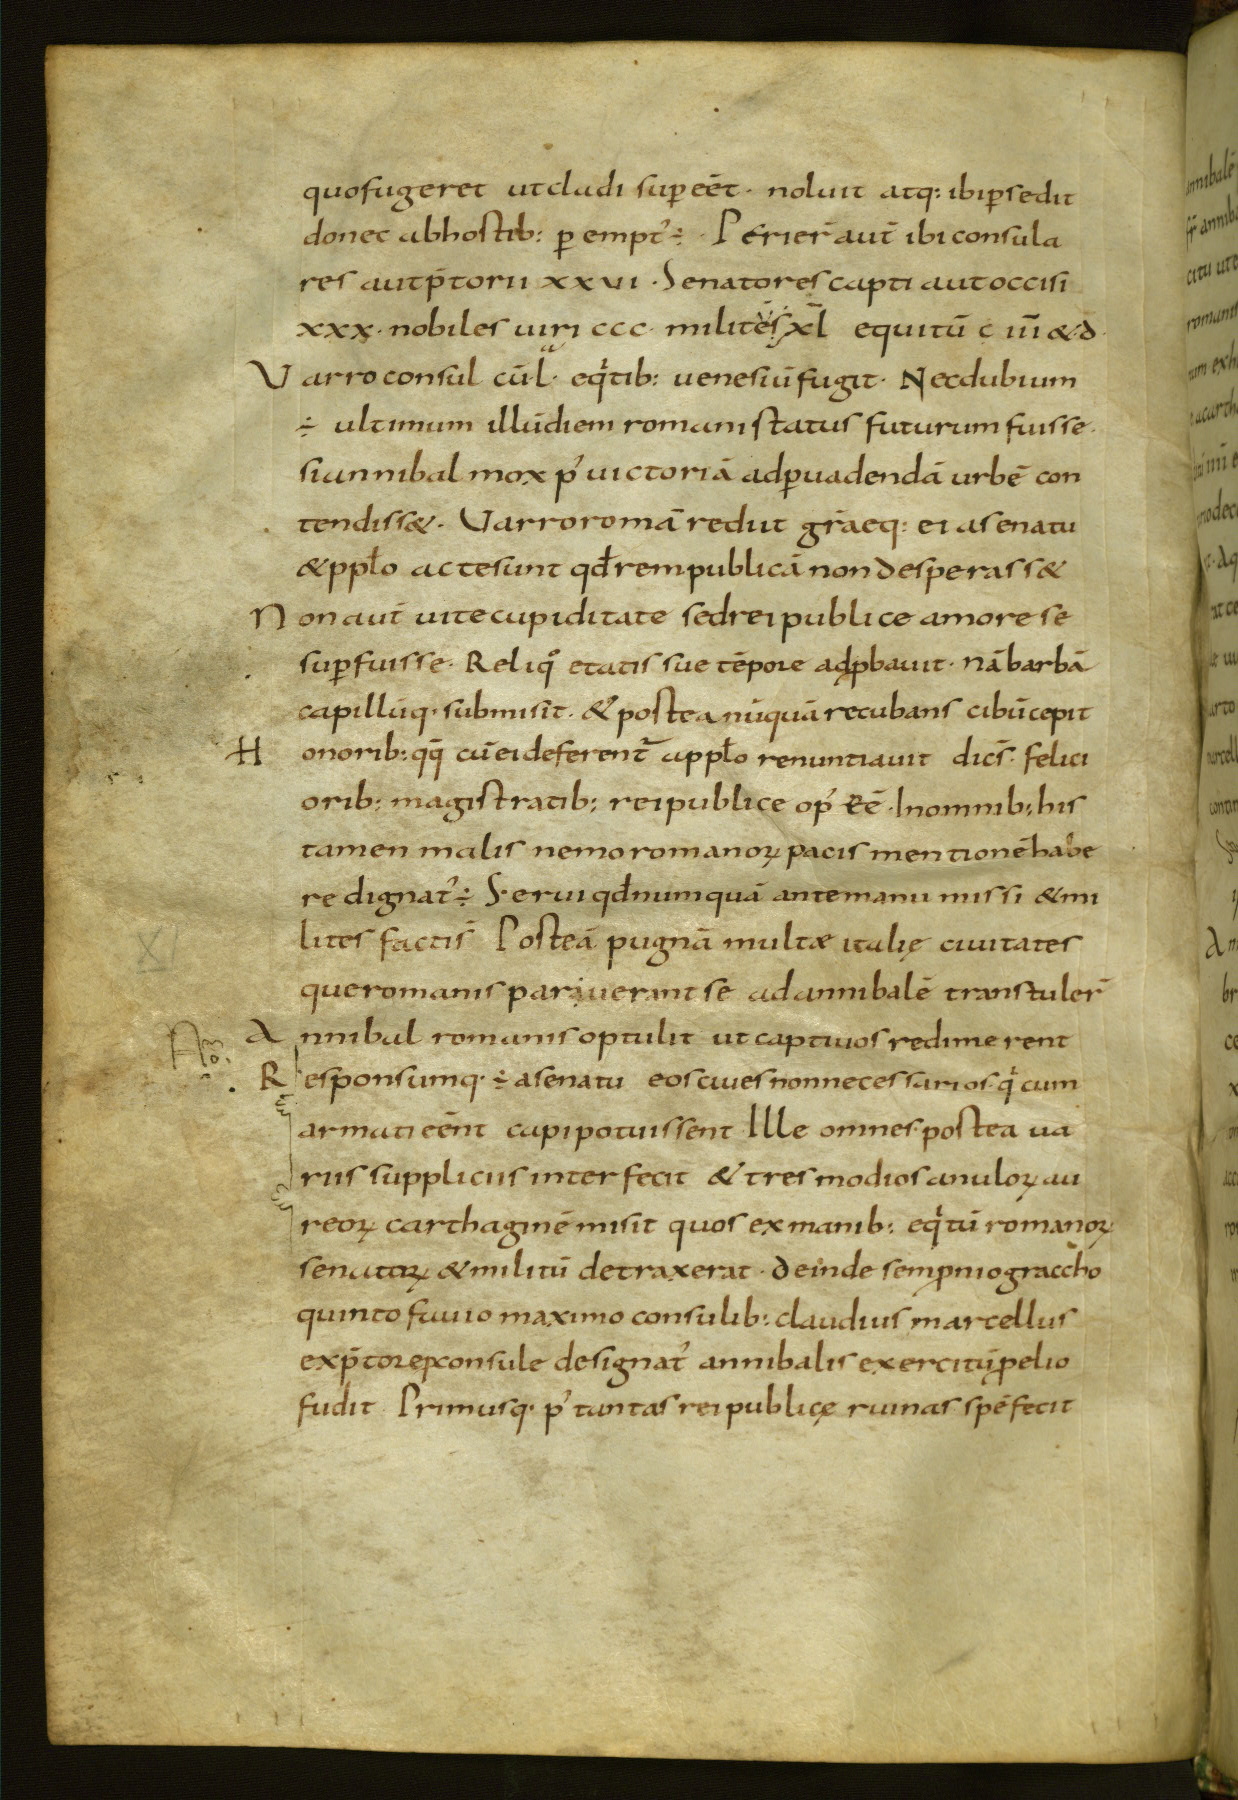 quo fugeret ut cladi supeēt. noluit atq: ibi psedit
donec ab hostib: p empt᾽ ÷ Perier̄ aut̄ ibi consula
res aut p̄torii xxvi. Senatores capti aut occisi
xxx. nobiles uiri ccc. milites xl̄ equitū c iīī & d.
Varro consul cū l. eqͥtib: uenesiū fugit. Nec dubium
÷ ultimum illū diem romani status futurum fuisse.
si annibal mox p᾽ uictoriā ad puadendā urbē con
tendiss&. Varro romā rediit gr̄aeq: ei a senatu
& ppl̄o acte sunt qđ rem publicā non desperass&
Non aut̄ uite cupiditate sed rei publice amore se
supfuisse. Reliqͦ etatis sue tēpore adpbauit. Nā barbā
capillūq. submisit. & postea nūquā recubans cibū cepit
Honorib: qq̄ cū ei deferent᾽ a ppl̄o renuntiauit dicS̄. felici
orib: magistratib: rei publice op᾽ eē. In omnib: his
tamen malis nemo romanoꝝ pacis mentionē habe
re dignat᾽ ÷ Serui qđ numquā ante manu missi & mi
lites facti s̄ Post eā pugnā multæ italię ciuitates
que romanis paruerant se ad annibalē transtuler̄
Annibal romanis optulit ut captiuos redimerent
Responsumq. ÷ a senatu eos ciues non necessarios. qͥ cum
armati eēnt capi potuissent Ille omnes postea ua
riis suppliciis interfecit & tres modios anuloꝝ au
reoꝝ carthaginē misit quos ex manib: eqͥtū romanoꝝ
senatoꝝ & militū detraxerat. Deinde sempnio graccho
quinto fauio maximo consulib: claudius marcellus
ex p̄tore pconsule designat᾽ annibalis exercitū pelio
fudit Primusq. p᾽ tantas rei publicę ruinas spē fecit
XI